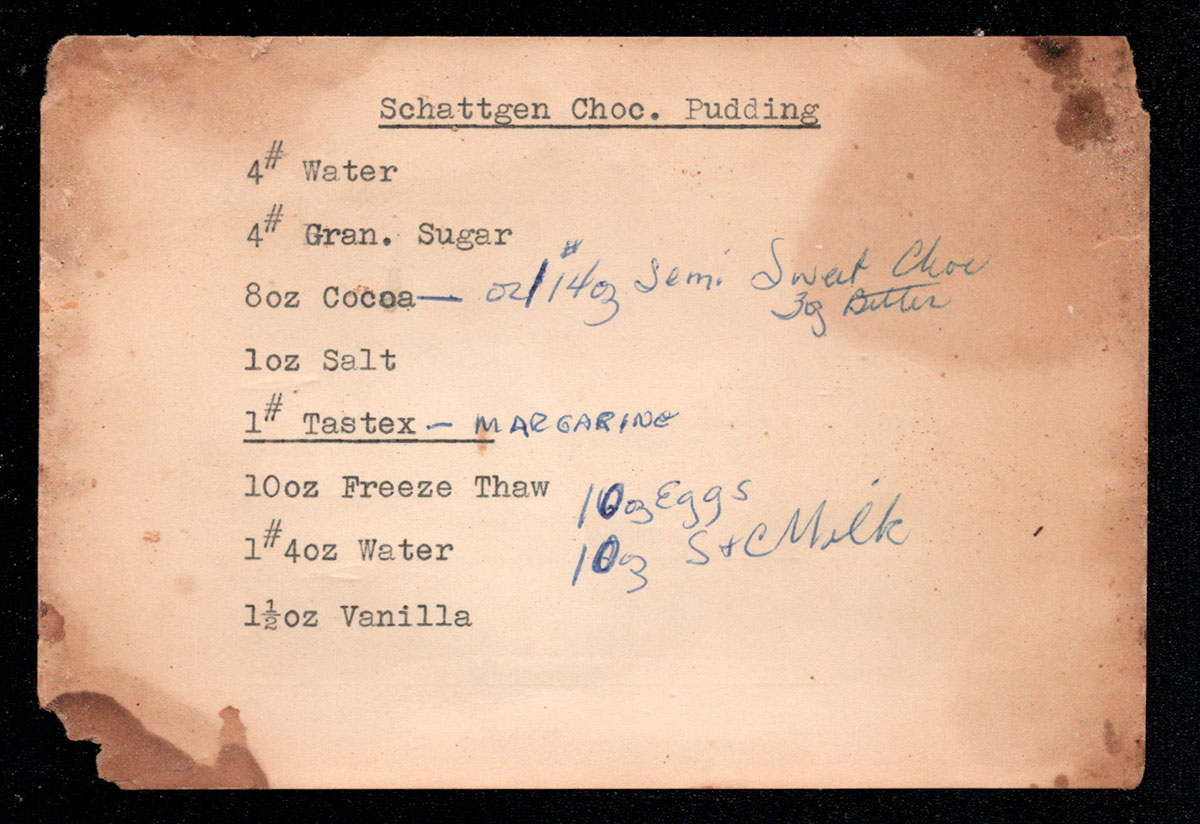 Schattgen Choc. Pudding
4# Water
4# Gran. Sugar
8oz Cocoa— or 1# 14oz Semi Sweet Choc
3oz Bitter
1oz Salt
1# Tastex — MARGARINE
10oz Freeze Thaw 10oz Eggs
1#4oz Water 10oz S+C Milk
1½oz Vanilla